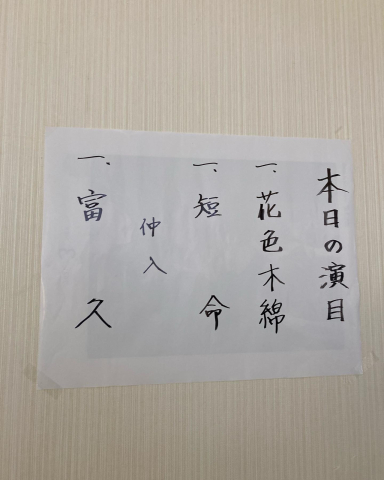 本日の演目
一、花色木綿
一、短命
仲入
一、富久